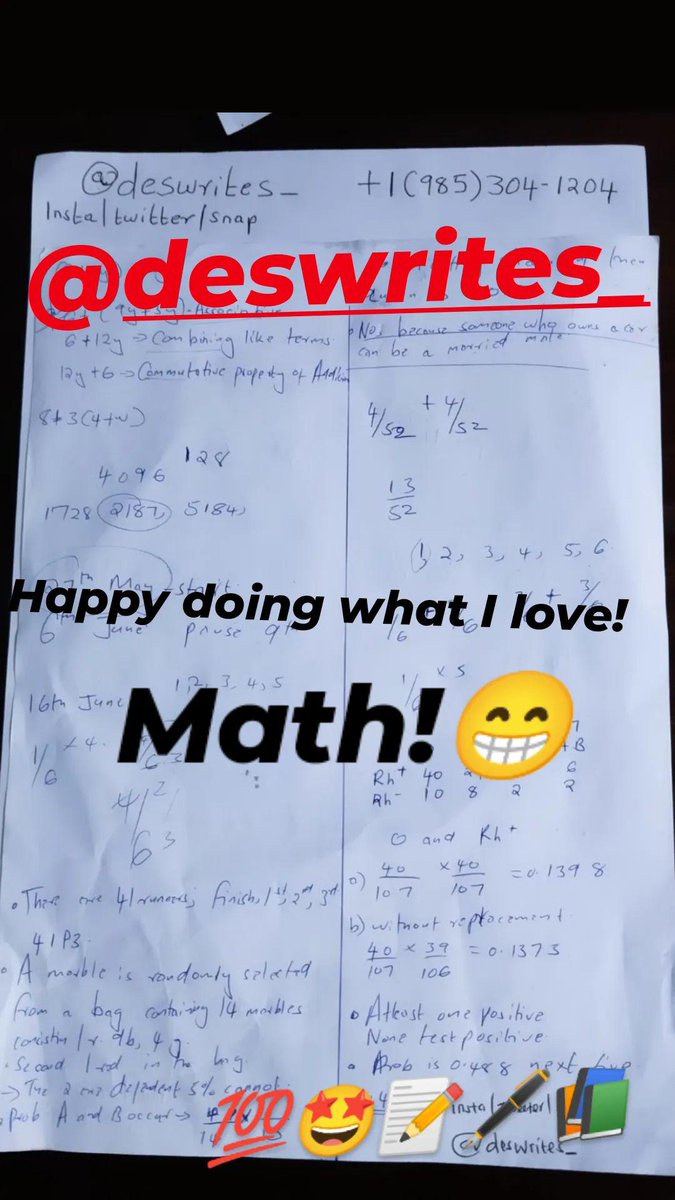 @deswrites_ +1(985)304-1204
Insta/twitter/snap
@deswrites_
6+12y → Combining like terms
12y+6 → Commutative property of Addition
8+3(4+w)
128
4096
1728 2187, 5184,
27th May start
6th June pause 9th
Happy doing what I love!
16th June 1,2,3,4,5
Math!😁
1/6 × 4
4/6 2/3
• There are 41 runners, finish, 1st, 2nd, 3rd
41P3.
• A marble is randomly selected
from a bag containing 14 marbles
• Second 1 red in the bag.
→ The 2 are dependent 5% cannot.
Prob A and B occur →
14
• No, because someone who owns a car
can be a married male
4/52 + 4/52
13
52
1, 2, 3, 4, 5, 6
1/6 × 5
B
Rh+ 40 6
Rh- 10 8 2 2
O and Rh+
a) 40/107 × 40/107 = 0.1398
b) without replacement
40/107 × 39/106 = 0.1373
• Atleast one positive
None test positive.
• Prob is 0.488 next five
💯🤩📝🖊️📚
insta/
@deswrites_